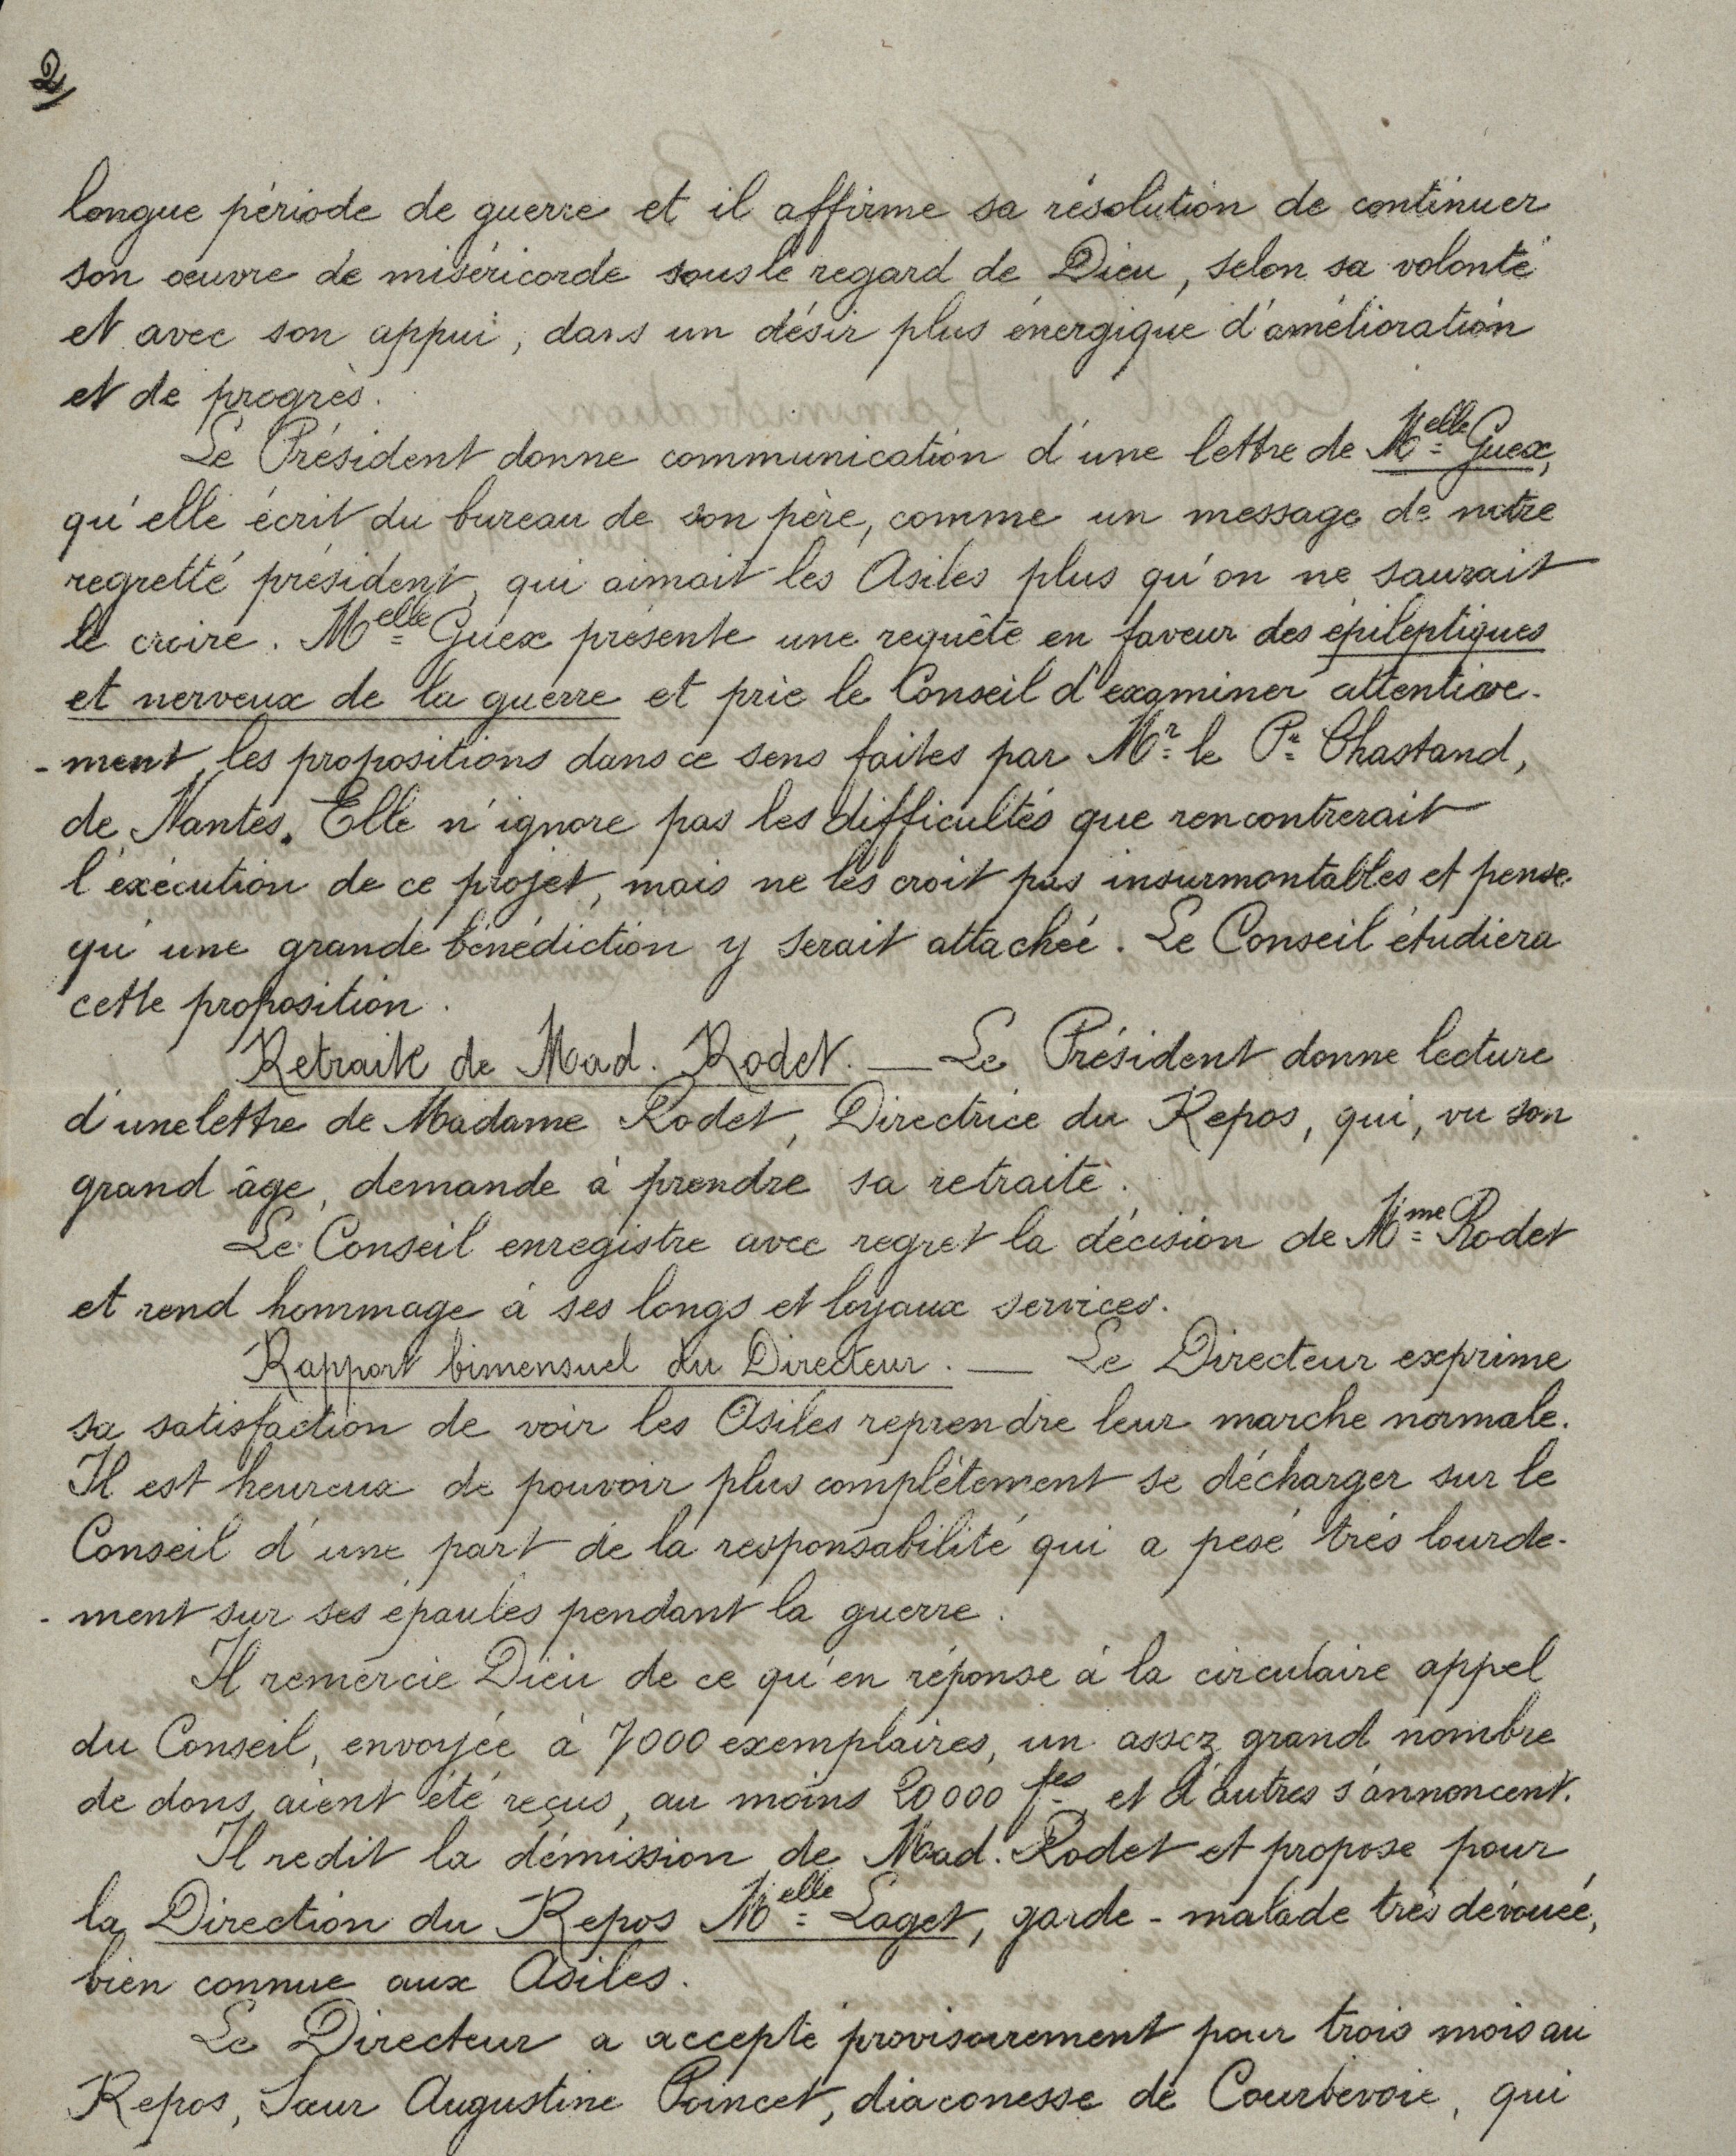 2
longue période de guerre et il affirme sa résolution de continuer
son œuvre de miséricorde sous le regard de Dieu, selon sa volonté
et avec son appui, dans un désir plus énergique d'amélioration
et de progrès.
Le Président donne communication d'une lettre de Melle Guex,
qu'elle écrit du bureau de son père, comme un message de notre
regretté président, qui aimait les Asiles plus qu'on ne saurait
le croire. Melle Guex présente une requête en faveur des épileptiques
et nerveux de la guerre et prie le Conseil d'examiner attentive-
-ment les propositions dans ce sens faites par Mr le Pr Chastand,
de Nantes. Elle n'ignore pas les difficultés que rencontrerait
l'exécution de ce projet, mais ne les croit pas insurmontables et pense
qu'une grande bénédiction y serait attachée. Le Conseil étudiera
cette proposition.
Retraite de Mad. Rodet. — Le Président donne lecture
d'une lettre de Madame Rodet, Directrice du Repos, qui, vu son
grand âge, demande à prendre sa retraite.
Le Conseil enregistre avec regret la décision de Mme Rodet
et rend hommage à ses longs et loyaux services.
Rapport bimensuel du Directeur. — Le Directeur exprime
sa satisfaction de voir les Asiles reprendre leur marche normale.
Il est heureux de pouvoir plus complètement se décharger sur le
Conseil d'une part de la responsabilité qui a pesé très lourde-
-ment sur ses épaules pendant la guerre.
Il remercie Dieu de ce qu'en réponse à la circulaire appel
du Conseil, envoyée à 7000 exemplaires, un assez grand nombre
de dons aient été reçus, au moins 20000 fcs et d'autres s'annoncent.
Il redit la démission de Mad. Rodet et propose pour
la Direction du Repos Melle Laget, garde-malade très dévouée,
bien connue aux Asiles.
Le Directeur a accepté provisoirement pour trois mois au
Repos, Sœur Augustine Poincet, diaconesse de Courbevoie, qui